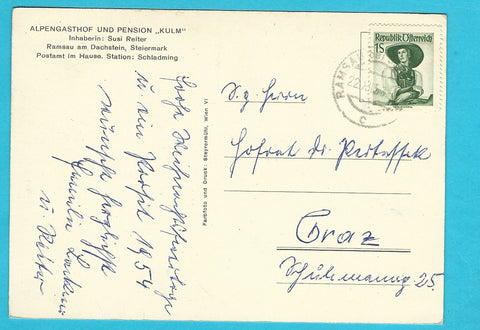 ALPENGASTHOF UND PENSION „KULM"
Inhaberin: Susi Reiter
Ramsau am Dachstein, Steiermark
Postamt im Hause. Station: Schladming
Republik Österreich
1S
RAMSAU
22.
c
S. g. Herrn
Hofrat Dr.
Graz
25.
Frohe Weihnachtsfeiertage
u. ein Prosit 1954
wünscht herzlichst
Familie
u. Reiter
Farbfoto und Druck: Steyrermühl, Wien VI